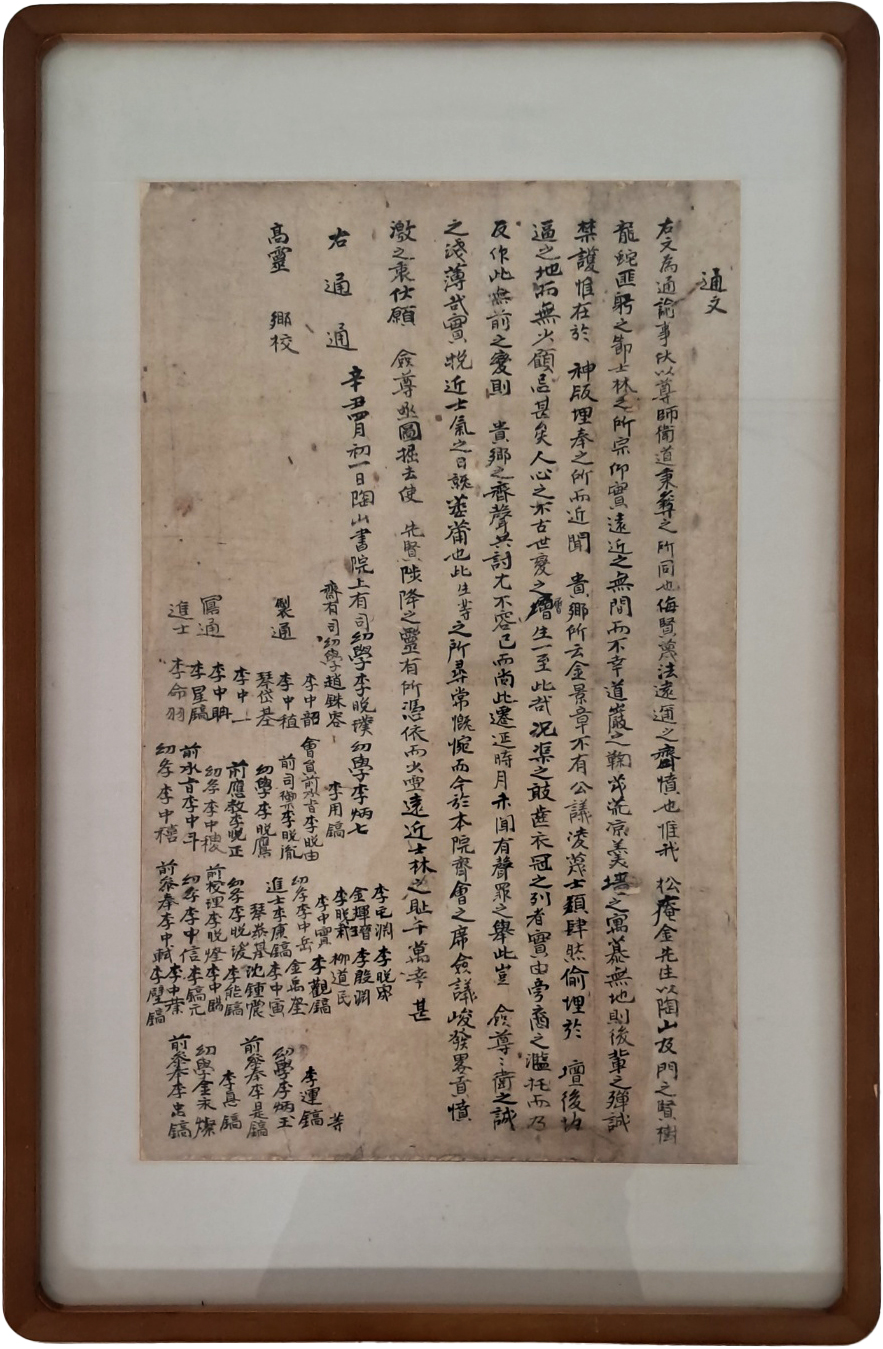 通文
右文爲通諭事伏以尊師衛道秉彛之所同也侮賢蔑法遠邇之齊憤也惟我 松庵金先生以陶山及門之賢樹
龍蛇匪躬之節士林之所宗仰實遠近之無間而不幸道巖之鞠茂荒凉羹墻之寓慕無地則後輩之殫誠
禁護惟在於 神版埋奉之所而近聞 貴鄉所云金景章不有公議凌蔑士類肆然偷埋於 壇後
逼之地而無少顧忌甚矣人心之不古世變之增生一至此哉况渠之齒衣冠之列者實由旁裔之濫托而乃
反作此無前之變則 貴鄉之齊聲共討尤不容已而尚此遷延時月未聞有聲罪之舉此豈 僉尊尊衛之誠
之淺薄哉實挽近士氣之日就萎薾也此生等之所尋常慨惋而今於本院齊會之席僉議峻發畧貢憤
激之衷伏願 僉尊亟圖掘去使 先賢陟降之靈有所憑依而少雪遠近士林之耻千萬幸甚
右通通
高靈 鄉校
辛丑四月初一日陶山書院上有司幼學李晩璞 幼學李炳七
齋有司幼學趙銖容 李用鎬
製通
寫通
進士
李中韶
李中植
琴岱基
李中一
李中
李星鎬
李命羽
會員前承旨李晩由
前司禦李晩胤
幼學李晩鷹
前應教李晩正
幼學李中
前承旨李中斗
幼學李中穡
李晩
金輝 李殷淵
李晩 柳道民
李中實 李觀鎬
幼學李中岳 金禹
進士李康鎬 李中寅
琴基 沈鍾震
幼學李晩 李能鎬
前校理李晩燈 李中
幼學李中信 李鎬元
前參奉李中軾 李中葉
李鎬
等
李運鎬
幼學李炳玉
前參奉李是鎬
李鎬
幼學金永燦
前參奉李忠鎬